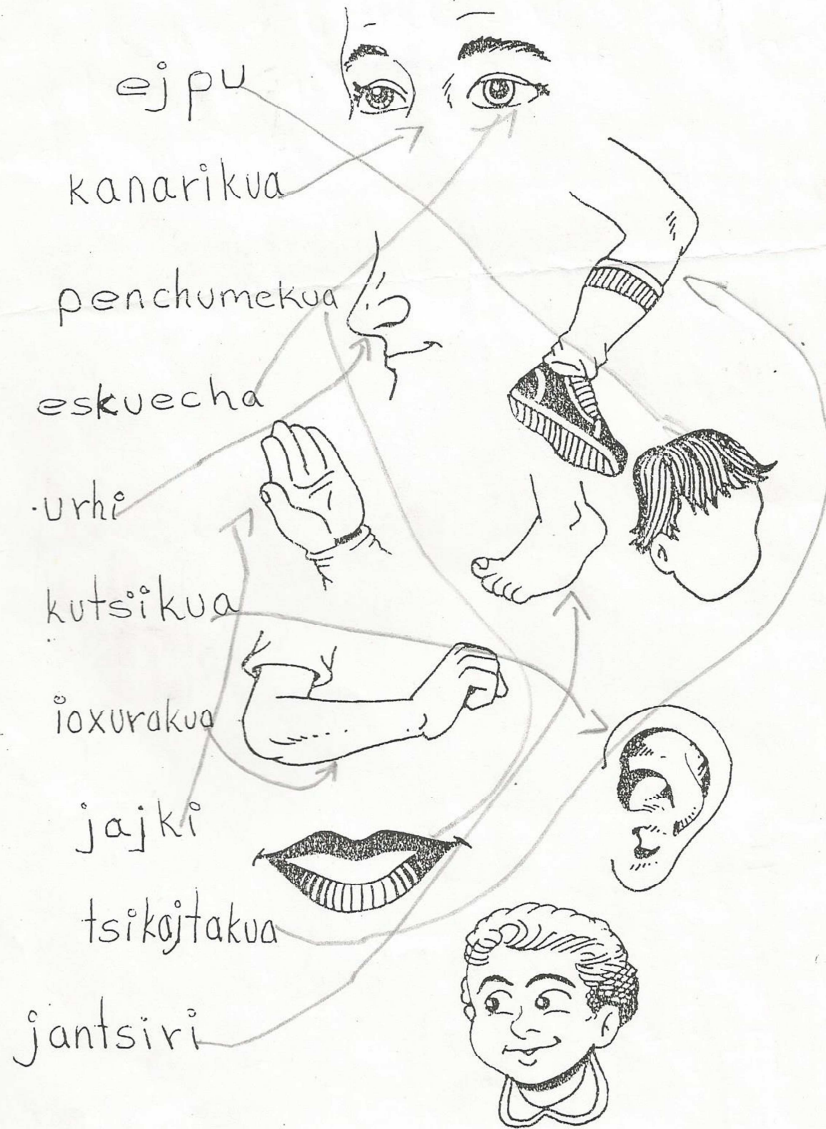 ejpu
kanarikua
penchumekua
eskuecha
urhi
kutsikua
ioxurakua
jajki
tsikajtakua
jantsiri